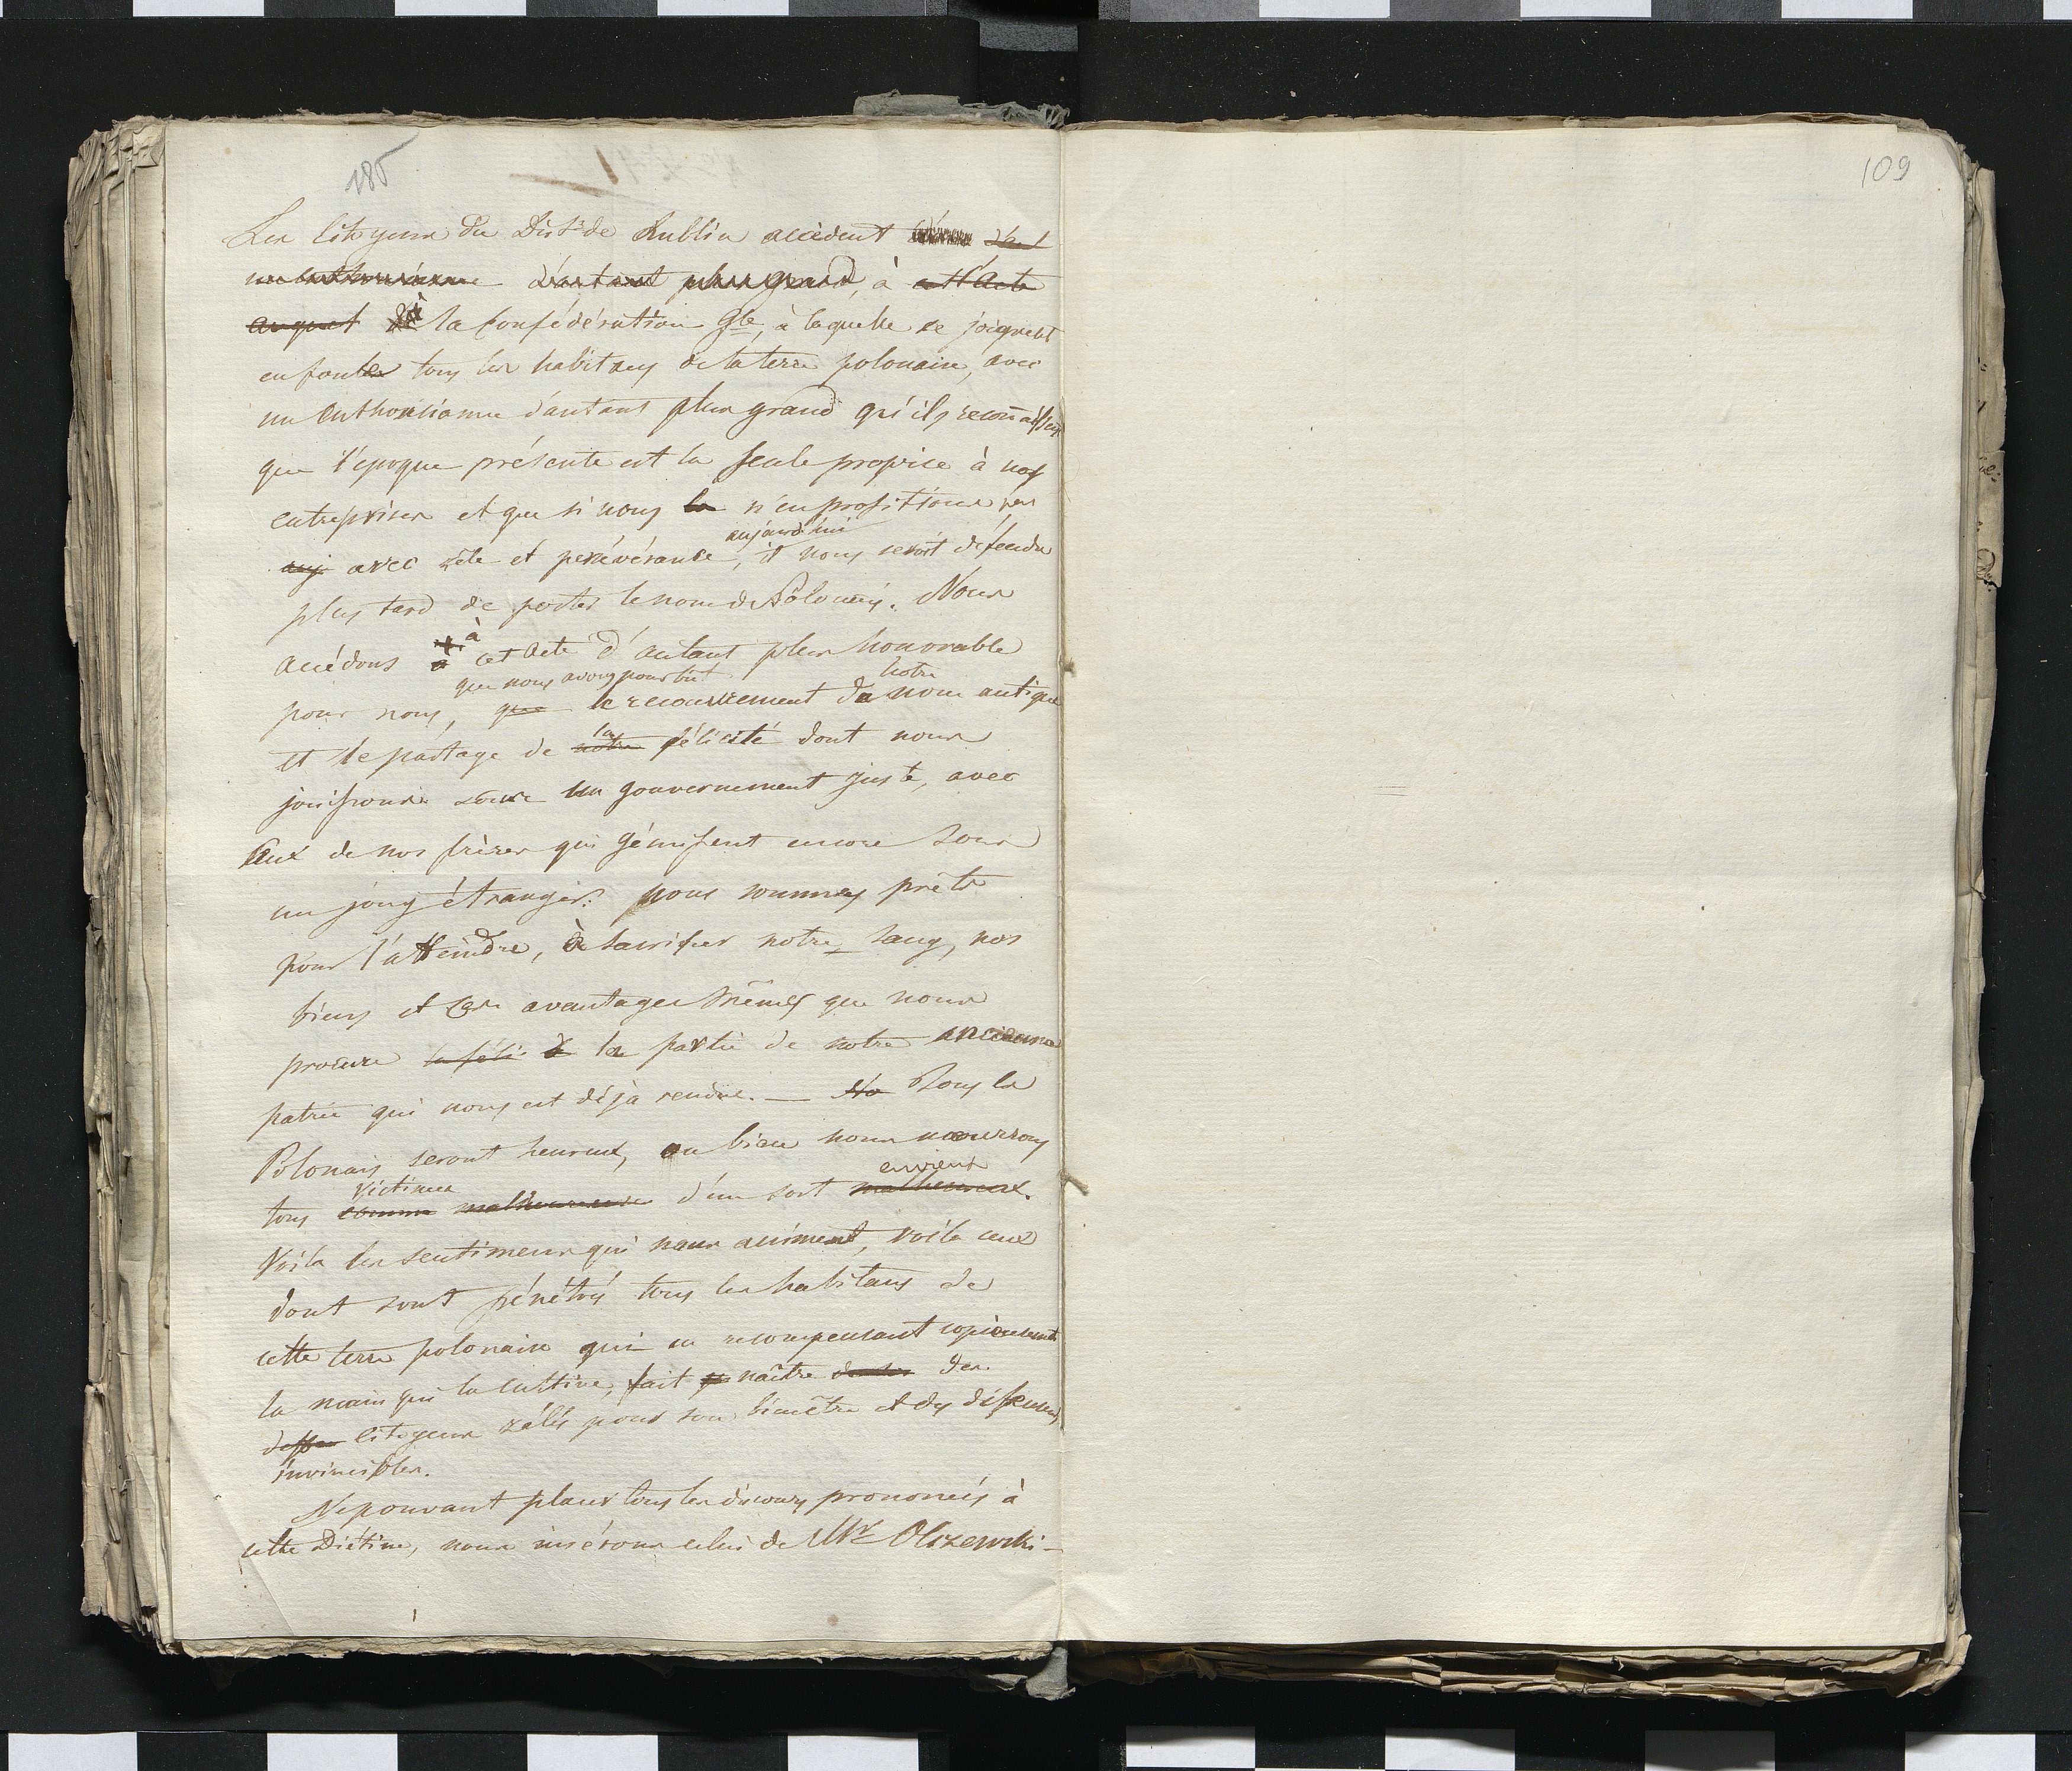 185
109
Les Citoyens du Dist: de Lublin accèdent d'aut
un enthousiasme d'autant plus grand, à cet Acte
auquel de la Confédération Gle, à laquelle se joignent
en foule tous les habitans de la terre polonaise, avec
un enthousiasme d'autant plus grand qu'ils reconnaissent
que l'époque présente est la seule propice à nos
entreprises et que si nous la n'en profitions pas
aujourd'hui
auj avec zèle et persévérance, il nous serait défendu
plus tard de porter le nom de Polonais. Nous
à
accédons à cet Acte d'autant plus honorable
que nous avons pour but notre
pour nous, que le recouvrement de nom antique
la
et le partage de notre félicité dont nous
jouissons sous un gouvernement juste, avec
ceux de nos frères qui gémissent encore sous
un joug étranger. Nous sommes prêts
pour l'atteindre, à sacrifier notre sang, nos
biens et les avantages mêmes que nous
procure la féli: d la partie de notre ancienne
patrie qui nous est déjà rendue. — No Tous les
Polonais seront heureux, ou bien nous mourrons
victimes envieux
tous comme malheureuses d'un sort malheureux.
Voilà les sentimens qui nous animent, voilà ceux
dont sont pénétrés tous les habitans de
cette terre polonaise qui en recompensant copieusement
la main qui la cultive, fait naître des
deffen citoyens zélés pour son bienêtre et des défenseurs
invincibles.
Ne pouvant placer tous les discours prononcés à
cette Diétine, nous insérons celui de Mr Olszewski —